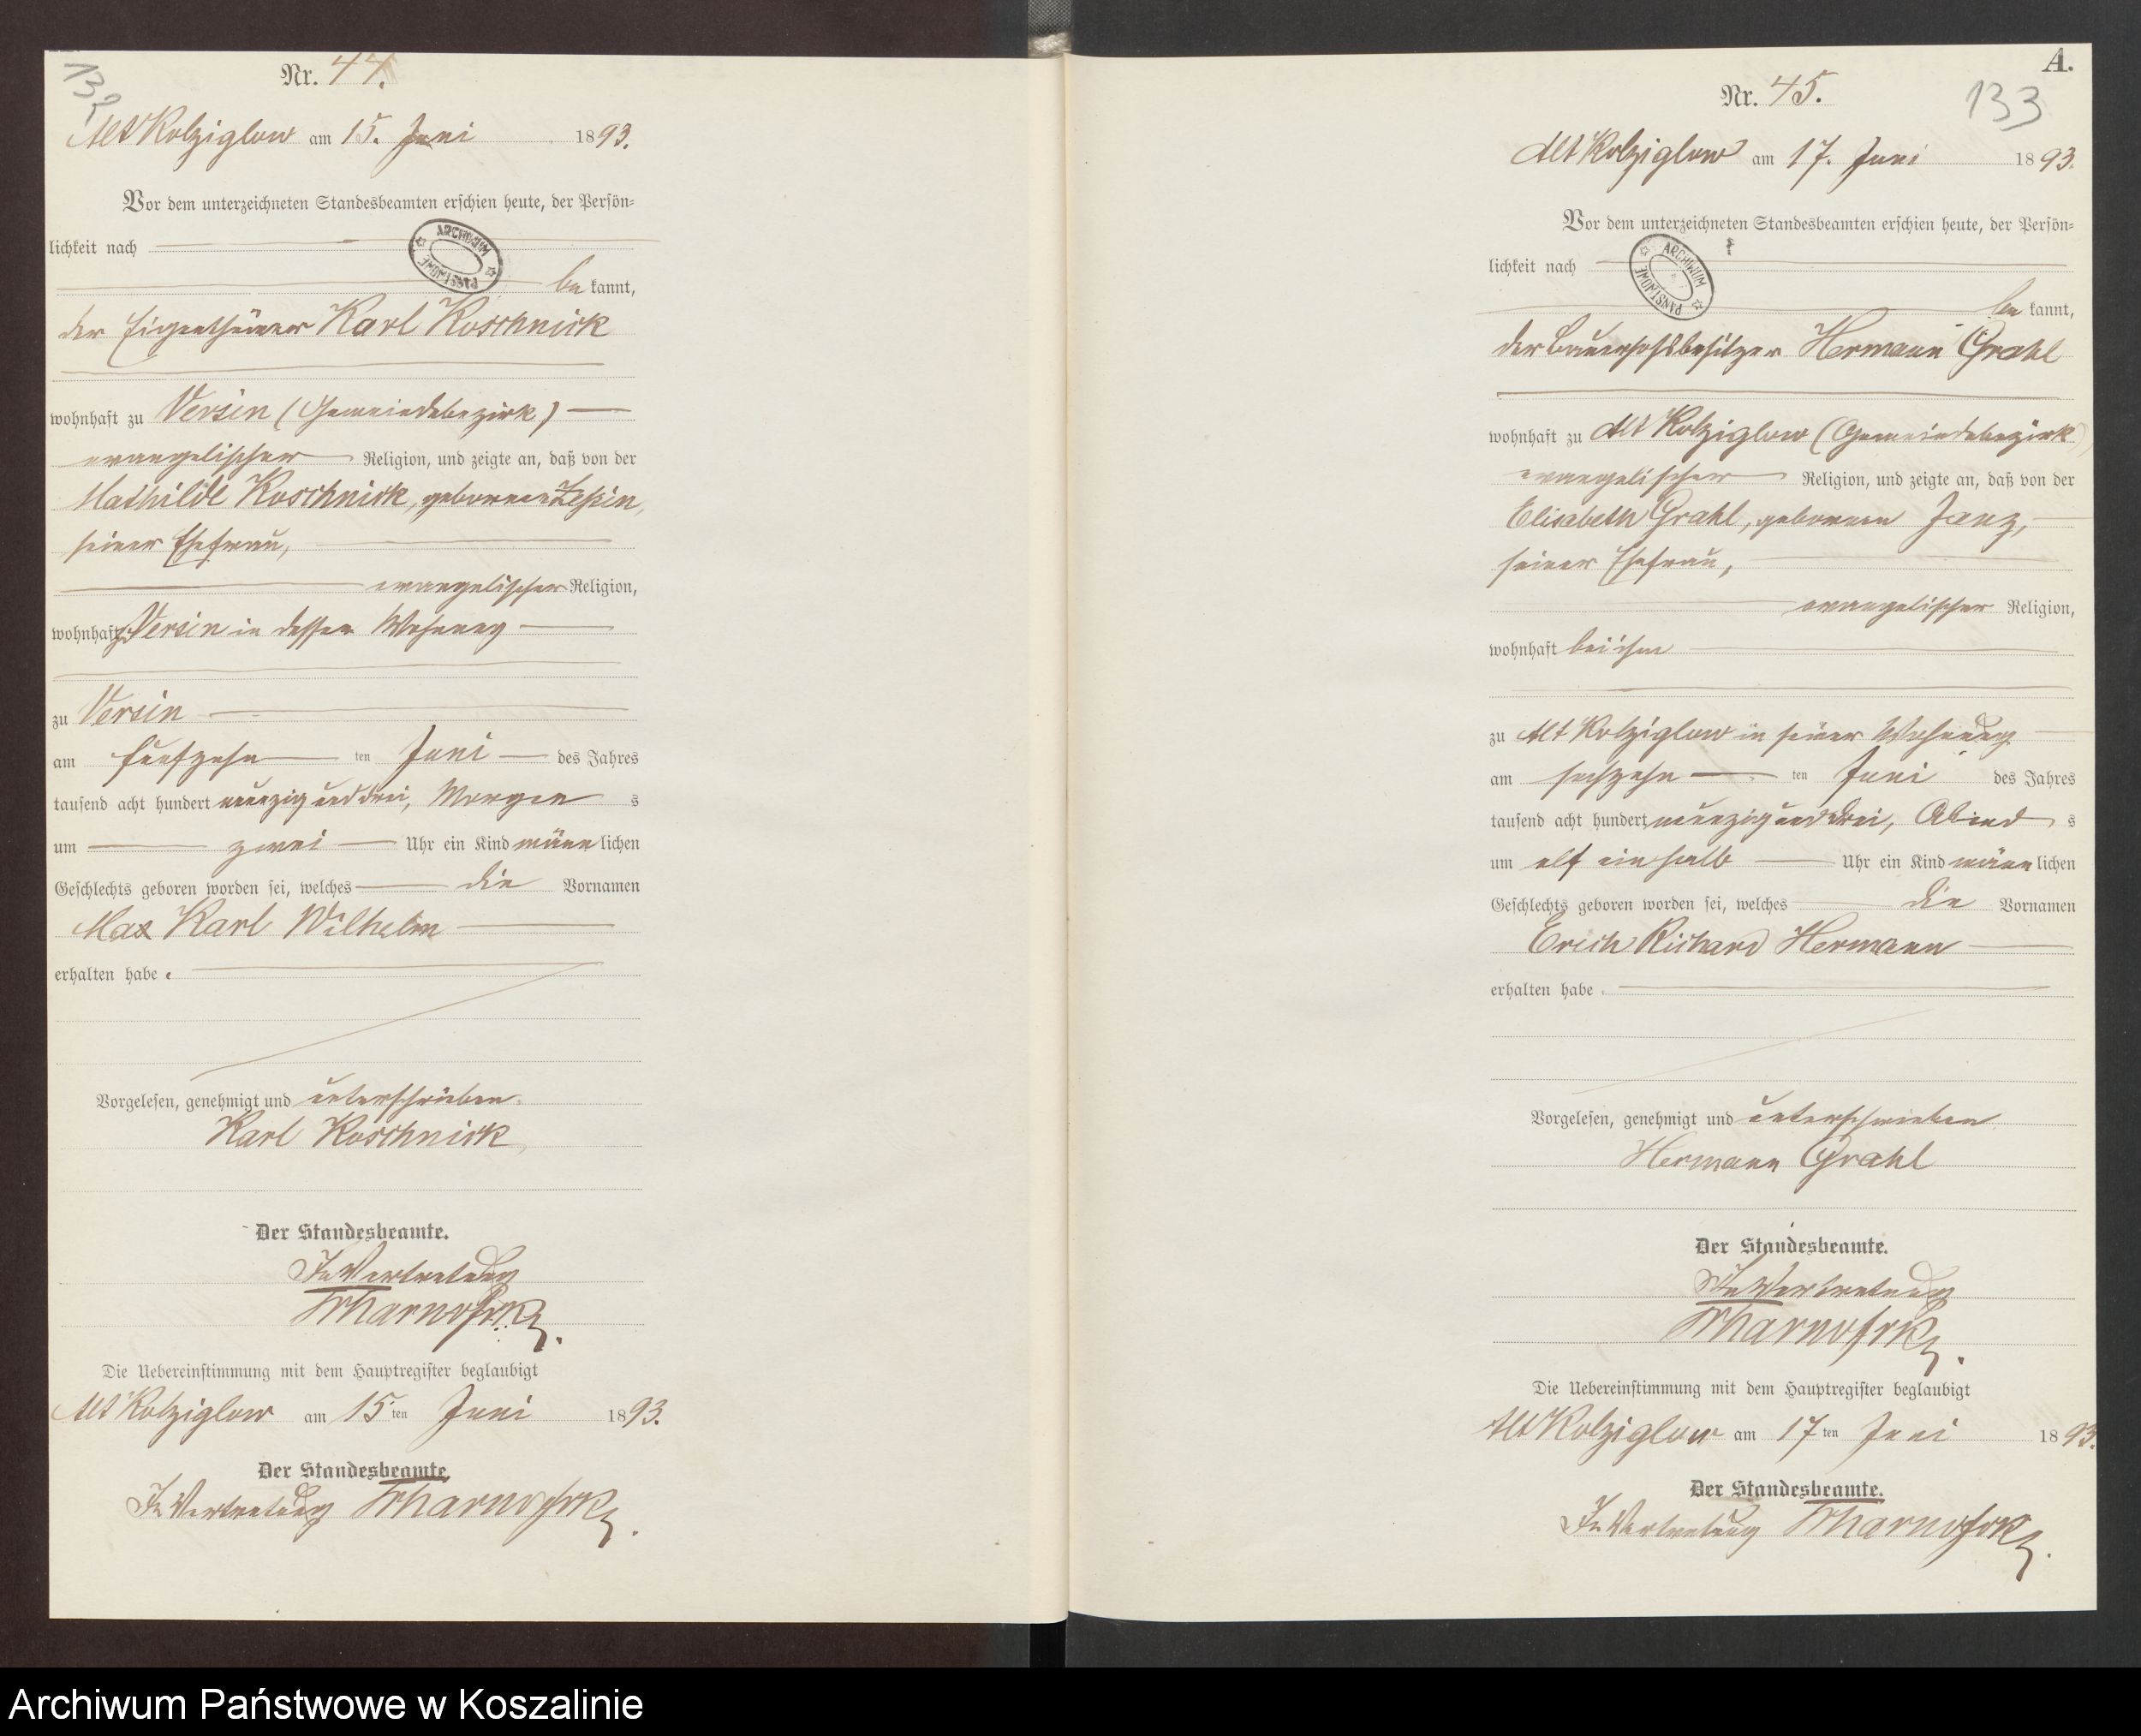 132
Nr. 44.
Alt Kolziglow am 15. Juni 1893.
Vor dem unterzeichneten Standesbeamten erschien heute, der Persön-
lichkeit nach
ARCHIWUM PAŃSTWOWE
be kannt,
der Eigenthümer Karl Koschnick
wohnhaft zu Versin (Gemeindebezirk)
evangelischer Religion, und zeigte an, daß von der
Mathilde Koschnick, geborenen
seiner Ehefrau,
evangelischer Religion,
wohnhaft zu Versin in dessen Wohnung
zu Versin
am fünfzehn ten Juni des Jahres
tausend acht hundert neunzig und drei, Morgen s
um zwei Uhr ein Kind männ lichen
Geschlechts geboren worden sei, welches die Vornamen
Max Karl Wilhelm
erhalten habe.
Vorgelesen, genehmigt und unterschrieben.
Karl Koschnick
Der Standesbeamte.
In Vertretung
Die Uebereinstimmung mit dem Hauptregister beglaubigt
Alt Kolziglow am 15 ten Juni 1893.
Der Standesbeamte.
In Vertretung
A.
133
Nr. 45.
Alt Kolziglow am 17. Juni 1893.
Vor dem unterzeichneten Standesbeamten erschien heute, der Persön-
lichkeit nach
ARCHIWUM PAŃSTWOWE
be kannt,
der Bauerhofsbesitzer Hermann Grahl
wohnhaft zu Alt Kolziglow (Gemeindebezirk)
evangelischer Religion, und zeigte an, daß von der
Elisabeth Grahl, geborenen Janz,
seiner Ehefrau,
evangelischer Religion,
wohnhaft bei ihm
zu Alt Kolziglow in seiner Wohnung
am sechzehn ten Juni des Jahres
tausend acht hundert neunzig und drei, Abend s
um elf ein halb Uhr ein Kind männ lichen
Geschlechts geboren worden sei, welches die Vornamen
Erich Richard Hermann
erhalten habe.
Vorgelesen, genehmigt und unterschrieben
Hermann Grahl
Der Standesbeamte.
In Vertretung
Die Uebereinstimmung mit dem Hauptregister beglaubigt
Alt Kolziglow am 17 ten Juni 1893.
Der Standesbeamte.
In Vertretung
Archiwum Państwowe w Koszalinie